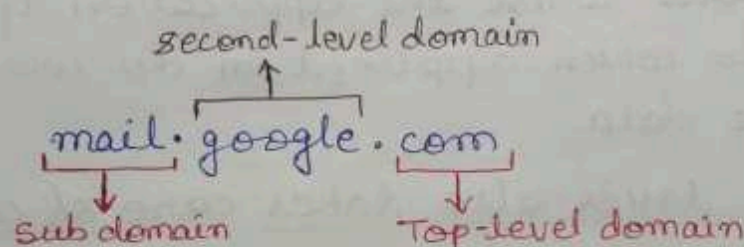 second-level domain
mail.google.com
subdomain
Top-level domain